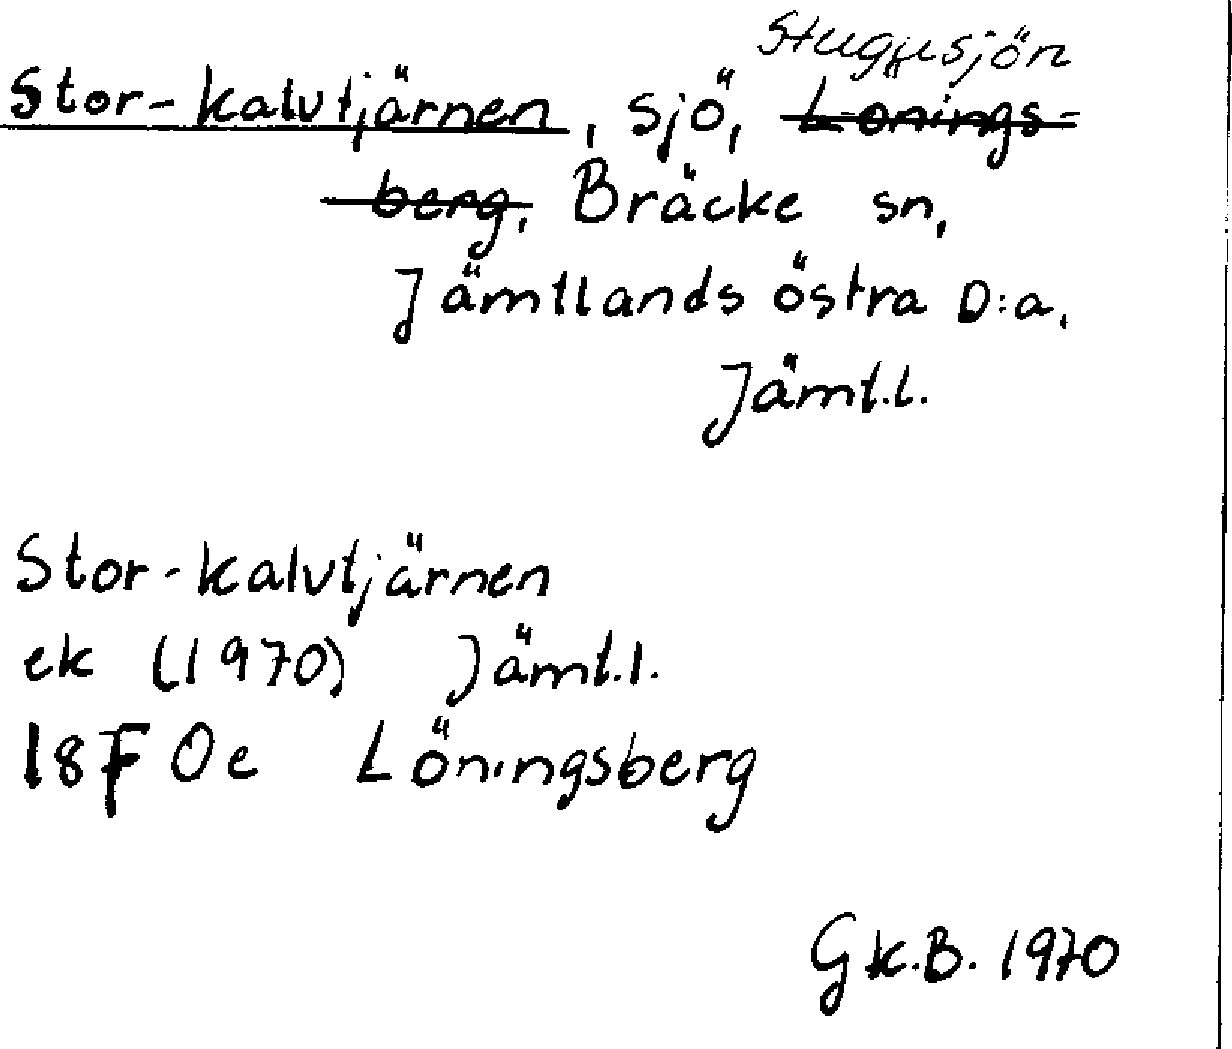 Stugusjön
Stor-kalvtjärnen, sjö, Lonings-
berg, Bräcke sn,
Jämtlands östra D:a,
Jämt.l.
Stor-kalvtjärnen
ek (1970) Jämt.l.
18F 0e Löningsberg
G.K.B. 1970